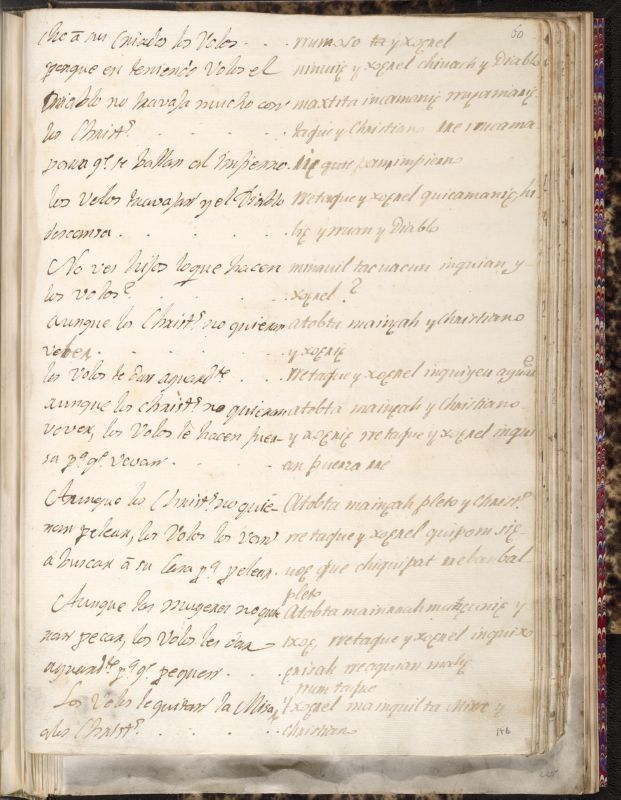 60
cho â sus criados los Volos . . rrumoso ta y xoɛnel
porque en teniendo Volos el nimiɛ y xoɛnel chinach y Diablo
Diablo no travaja mucho con maxtita incamaniɛ
los Christ.s . . . . taque y Christiano rre
para q.e se hallan al Infierno.
los Volos travajan y el Diablo rretaque y xoɛnel quicamaniɛ hi
descansa . . . . . liɛ y rruan y Diablo
No ves hijos lo que hacen minavil tacuacun inquian y
los volos? . . . . xoɛnel ?
aunque los Christ.s no quieren atobta mainɛah y Christiano
vever . . . . . y xoɛniɛ
los Volos le dan aguard.te . rretaque y xoɛnel inquiyeu
aunque los christ.s no quieren atobta mainɛah y Christiano
vever, los Volos le hacen fuer- y xoɛniɛ rretaque y xoɛnel inqui
sa p.a q.e vevan . . . an puerza rre
Aunque los Christ.s no quie- Atobta mainɛah pleto y Christ.o
ran pelear, los Volos los van rretaque y xoɛnel quipom siɛ
a buscar â su Casa p.a pelear. uoɛ que chiquipat rebanbal
pleto
Aunque las mugeres no quie Atobta y
ran pecar, los Volos les dan ixoɛ, rretaque y xoɛnel inquixo
aguard.te p.a q.e pequen . ɛnisah reaquian maliɛ
rumtaque
Los Volos le quitan la Misa y xoɛnel mainquilta Mire y
a los Christ.s . . . . Christiano
146